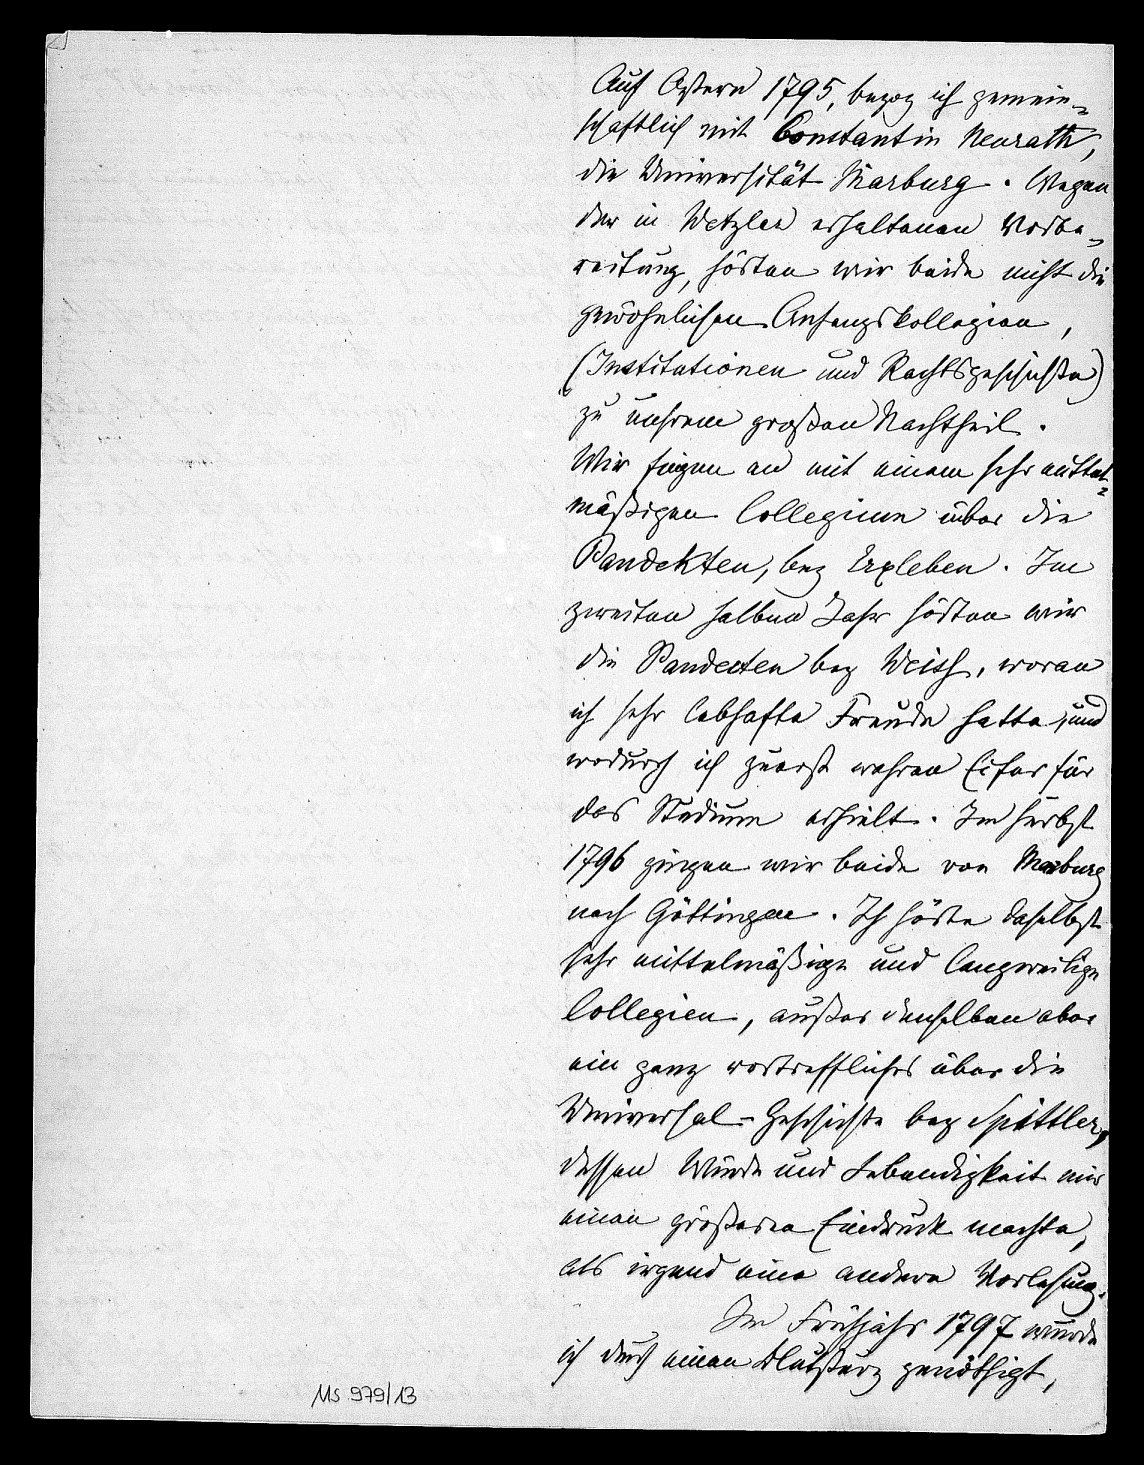 Auf Ostern 1795, bezog ich gemein-
schaftlich mit Constantin Neurath,
die Universität Marburg. Wegen
der in Wetzlar erhaltenen Vorbe-
reitung, hörten wir beide nicht die
gewöhnlichen Anfangskollegien,
(Institutionen und Rechtsgeschichte)
zu unserem großen Nachtheil.
Wir fingen an mit einem sehr mittel-
mäßigen Collegium über die
Pandekten, bey Erxleben. Im
zweiten halben Jahr hörten wir
die Pandecten bey Weiss, woran
ich sehr lebhafte Freude hatte, und
wodurch ich zuerst wahren Eifer für
das Studium erhielt. Im Herbst
1796 gingen wir beide von Marburg
nach Göttingen. Ich hörte daselbst
sehr mittelmäßige und langweilige
Collegien, außer denselben aber
ein ganz vortreffliches über die
Universal-Geschichte bey Spittler,
dessen Würde und Lebendigkeit mir
einen größeren Eindruck machte,
als irgend eine andere Vorlesung.
Im Frühjahr 1797 wurde
ich durch einen Blutsturz genöthigt,
Ms 979/13